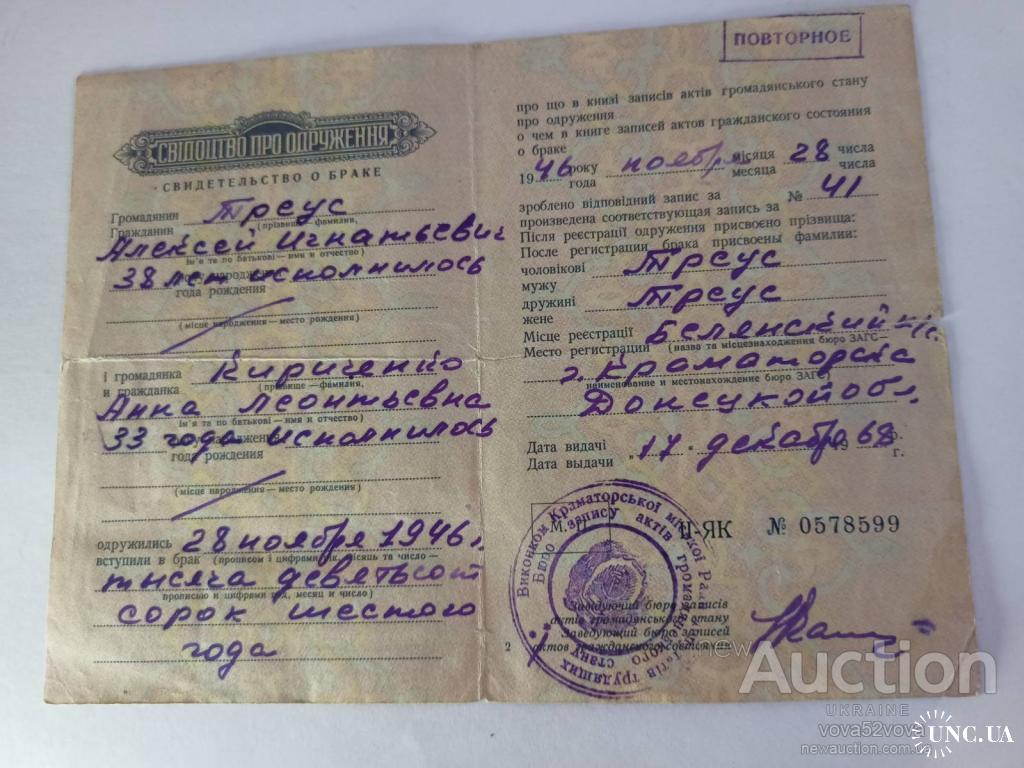 СВІДОЦТВО ПРО ОДРУЖЕННЯ
СВИДЕТЕЛЬСТВО О БРАКЕ
Громадянин
Гражданин Треус
(прізвище – фамилия,
Алексей Игнатьевич
ім'я та по батькові – имя и отчество)
38 лет исполнилось
народження
года рождения
(місце народження – место рождения)
і громадянка
и гражданка Кириченко
(прізвище – фамилия,
Анна Леонтьевна
ім'я та по батькові – имя и отчество)
33 года исполнилось
народження
года рождения
(місце народження – место рождения)
одружились
вступили в брак 28 ноября 1946 г.
(прописом і цифрами рік, місяць та число –
тысяча девятьсот
прописью и цифрами год, месяц и число)
сорок шестого
года
ПОВТОРНОЕ
про що в книзі записів актів громадянського стану
про одруження
о чем в книге записей актов гражданского состояния
о браке
1946 року ноября місяця 28 числа
года месяца числа
зроблено відповідний запис за
произведена соответствующая запись за № 41
Після реєстрації одруження присвоєно прізвища:
После регистрации брака присвоены фамилии:
чоловікові Треус
мужу
дружині Треус
жене
Місце реєстрації Белянский
Место регистрации (назва та місцезнаходження бюро ЗАГС –
г. Краматорска
наименование и местонахождение бюро ЗАГС)
Донецкой обл.
Дата видачі
Дата выдачи „17" декабря 1968 р.
г.
М. П.
II-ЯК № 0578599
Виконком Краматорської міської Ради депутатів трудящих
Бюро запису актів громадянського стану
Завідуючий бюро записів
актів громадянського стану
Заведующий бюро записей
2 актов гражданского состояния
new Auction
UKRAINE
vova52vova
newauction.com.ua
UNC.UA